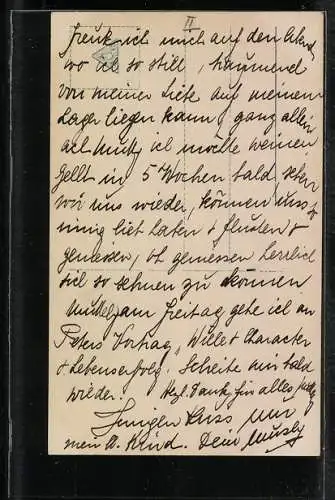 II
freue ich mich auf den Abend
wo ich so still, träumend
von meiner Liebe auf meinem
Lager liegen kann, ganz allein
ach Mutz ich möchte weinen
gellt in 5 Wochen bald sehen
wir uns wieder, können uns so
innig lieb haben + flüstern +
geniessen, oh geniessen herrlich
sich so sehnen zu können
am Freitag gehe ich in
Peters Vortrag „Wille + Character
+ Lebenserfolg. Schreibe mir bald
wieder. Hzl. Dank für alles
Innigen Kuss nur
mein Kind. Dein